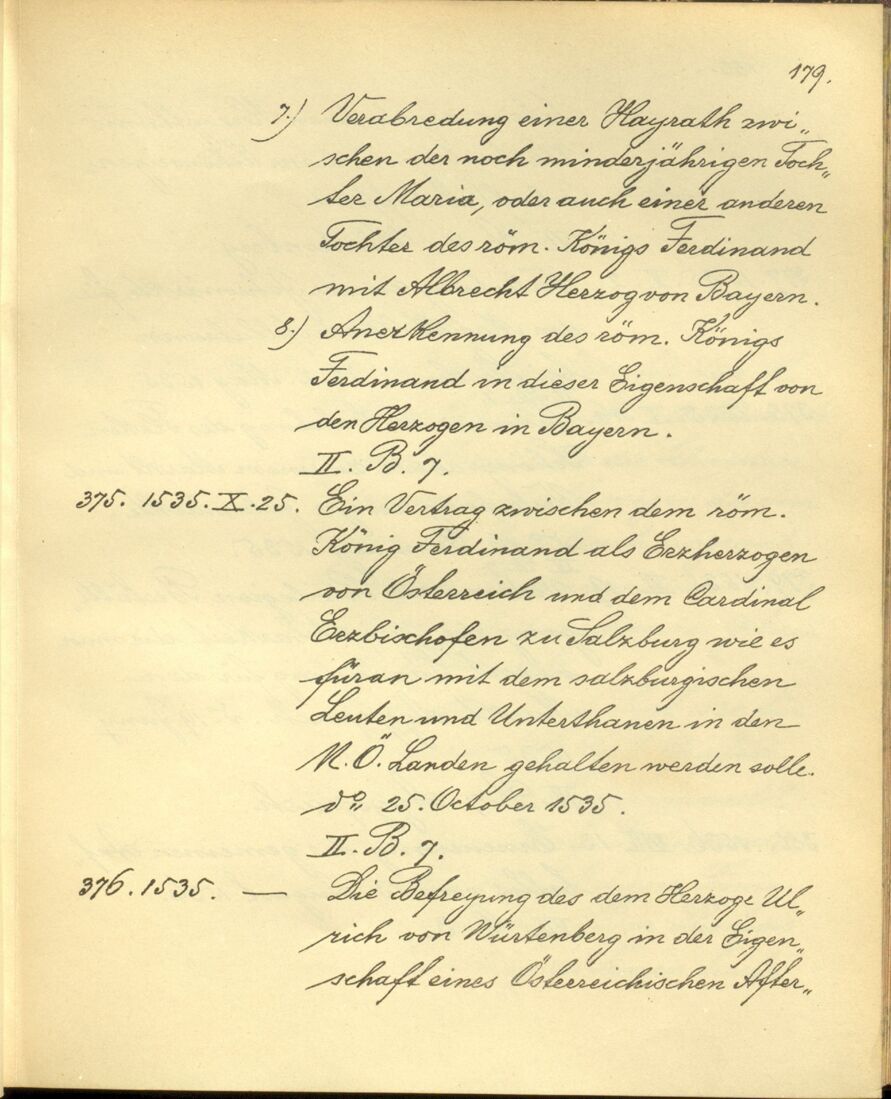 179.
7.) Verabredung einer Hayrath zwi„
schen der noch minderjährigen Toch„
ter Maria, oder auch einer anderen
Tochter des röm. Königs Ferdinand
mit Albrecht Herzog von Bayern.
8.) Anerkennung des röm. Königs
Ferdinand in dieser Eigenschaft von
den Herzogen in Bayern.
II. B. 7.
375. 1535. X. 25. Ein Vertrag zwischen dem röm.
König Ferdinand als Erzherzogen
von Österreich und dem Cardinal
Erzbischofen zu Salzburg wie es
füran mit dem salzburgischen
Leuten und Unterthanen in den
N. Ö. Landen gehalten werden solle.
do„ 25. October 1535.
II. B. 7.
376. 1535. — Die Befreyung des dem Herzoge Ul„
rich von Würtenberg in der Eigen„
schaft eines Österreichischen After„